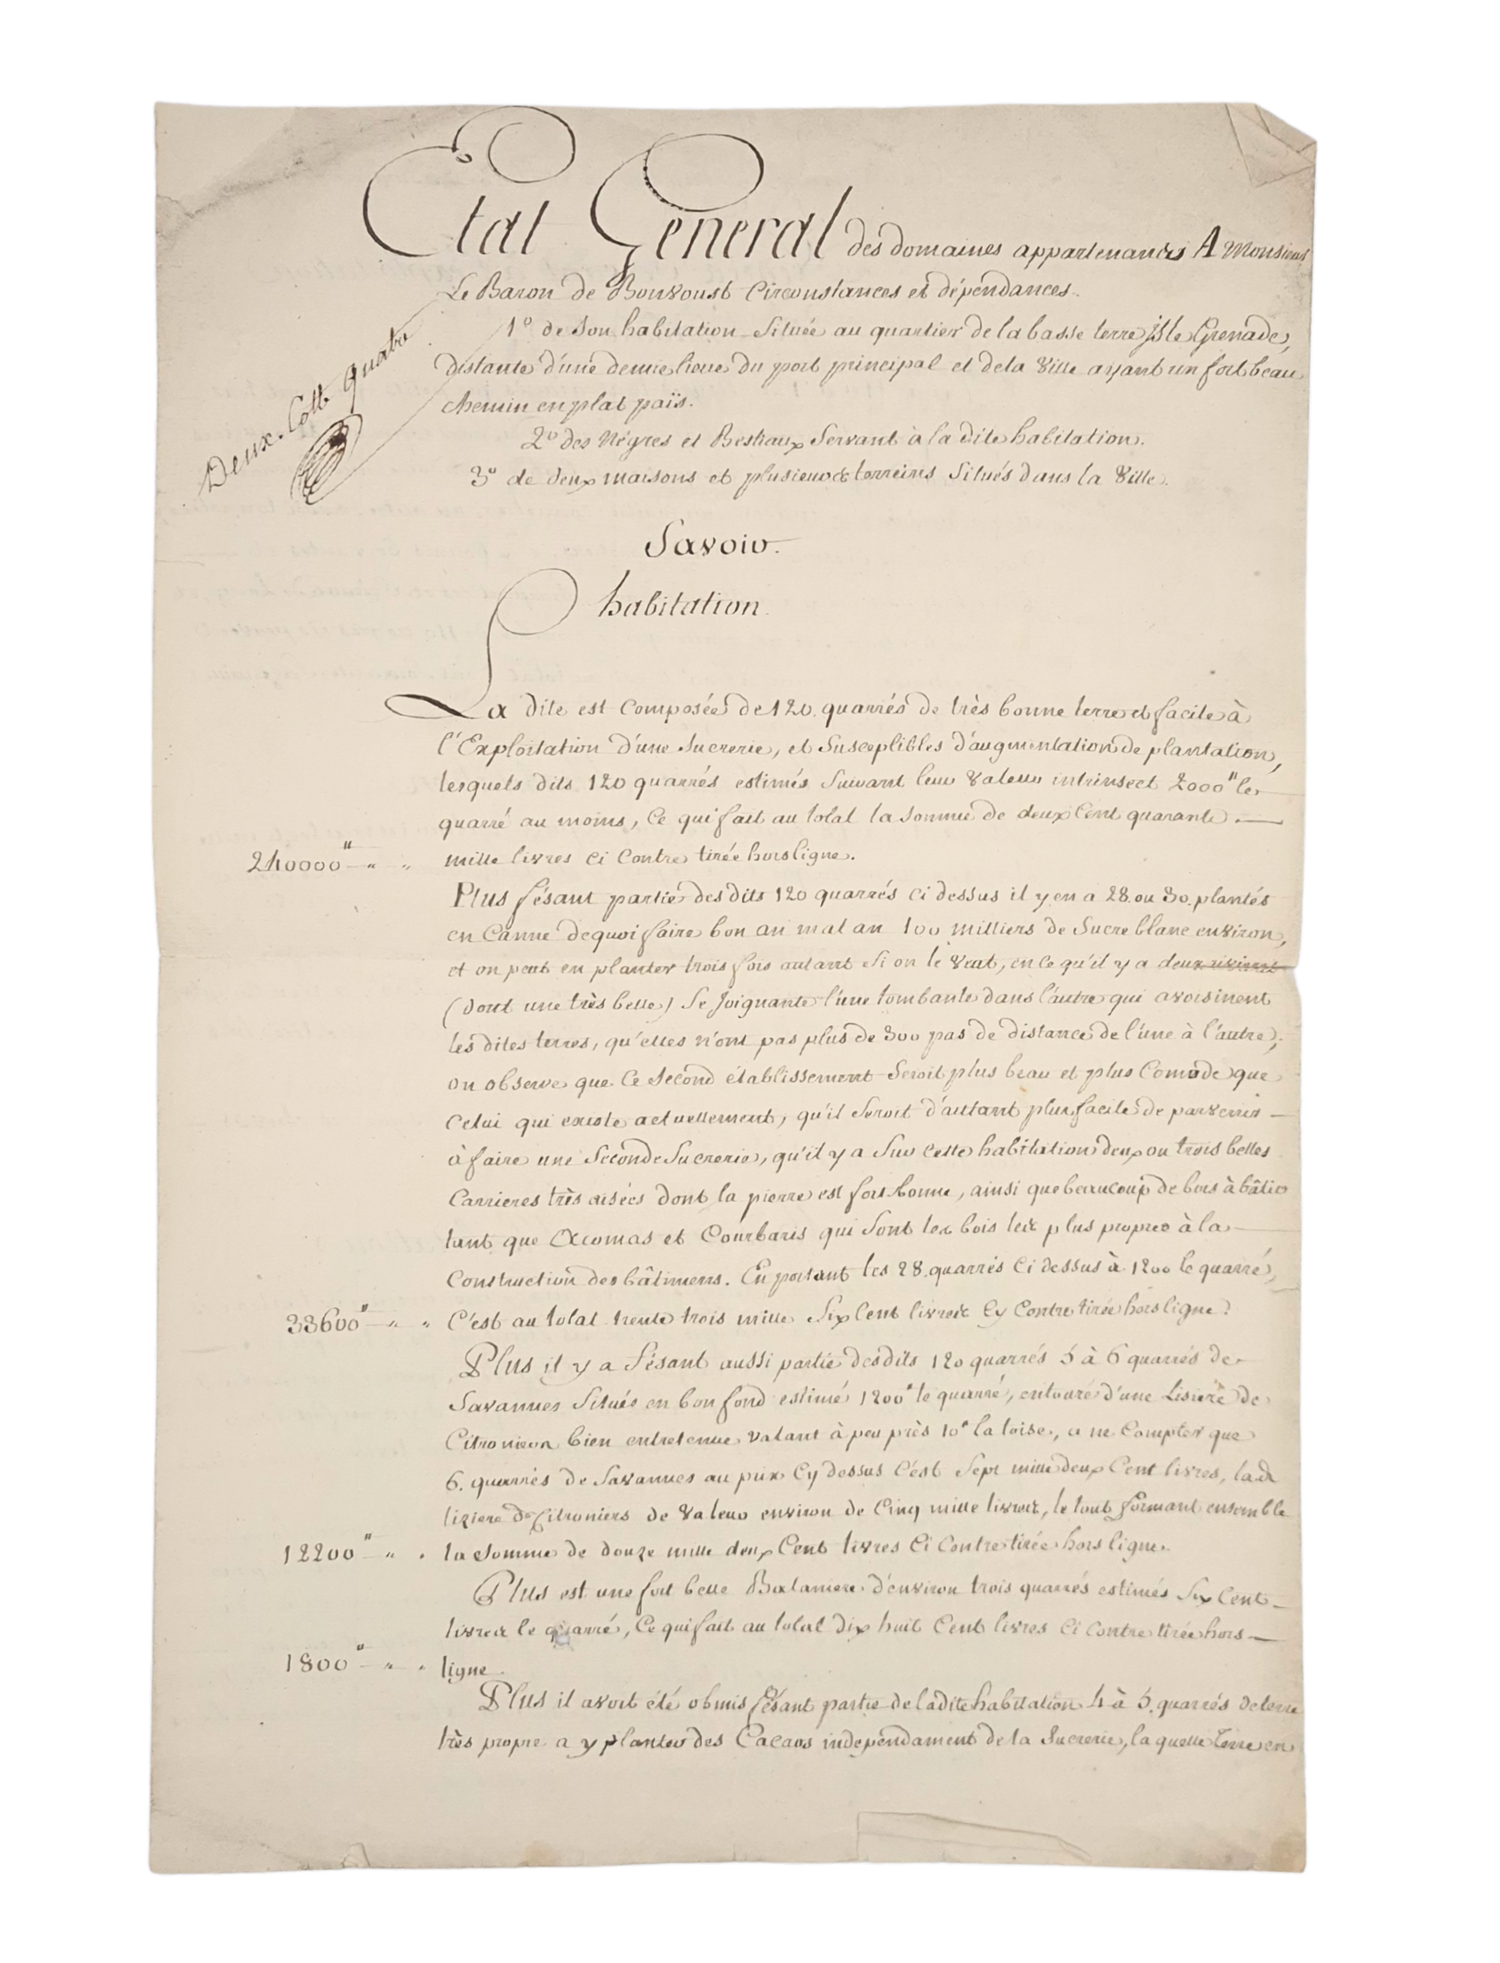 Etat General des domaines appartenances A Monsieur
Le Baron de Bonvoust Circonstances et dépendances.
Deux. Cott quatre
1º de son habitation Située au quartier de la basse terre isle Grenade,
distante d'une demie lieue du port principal et de la Ville ayant un fort beau
chemin en plat païs.
2º des Négres et Bestiaux Servant à la dite habitation.
3º de deux maisons et plusieurs terreins Situés dans la Ville.
Savoir.
habitation.
La dite est Composée de 120. quarrés de très bonne terre et facile à
l'Exploitation d'une Sucrerie, et Susceptibles d'augmentation de plantation,
lesquels dits 120 quarrés estimés Suivant leur Valeur intrinsect 2000" le
quarré au moins, Ce qui fait au total la Somme de deux Cent quarante
240000" " " mille livres Ci Contre tirée hors ligne.
Plus fésant partie des dits 120 quarrés Ci dessus il y en a 28. ou 30. plantés
en Canne de quoi faire bon an mal an 100 milliers de Sucre blanc environ,
et on peut en planter trois fois autant Si on le Veut, en ce qu'il y a deux rivieres
(dont une très belle) Se Joignante l'une tombante dans l'autre qui avoisinent
les dites terres, qu'elles n'ont pas plus de 300 pas de distance de l'une à l'autre;
on observe que Ce Second établissement Seroit plus beau et plus Comode que
Celui qui existe actuellement, qu'il Seroit d'autant plus facile de parvenir
à faire une Seconde Sucrerie, qu'il y a Sur cette habitation deux ou trois belles
Carrieres très aisées dont la pierre est fort bonne, ainsi que beaucoup de bois à bâtir
tant que Acomas et Courbaris qui Sont les bois les plus propres à la
Construction des bâtimens. En portant les 28. quarrés Ci dessus à 1200 le quarré,
33600" " " C'est au total trente trois mille Six Cent livres Cy Contre tirée hors ligne.
Plus il y a fésant aussi partie desdits 120 quarrés 5 à 6 quarrés de
Savannes Situés en bon fond estimé 1200" le quarré, entouré d'une Lisiere de
Citroniers bien entretenue valant à peu près 10" la toise, a ne Compter que
6. quarrés de Savannes au prix Cy dessus C'est Sept mille deux Cent livres, lad
liziere de Citroniers de Valeur environ de Cinq mille livres, le tout formant ensemble
12200" " " la Somme de douze mille deux Cent livres Ci Contre tirée hors ligne.
Plus est une fort belle Bananiere d'environ trois quarrés estimés Six Cent
livres le quarré, Ce qui fait au total dix huit Cent livres Ci Contre tirée hors
1800" " " ligne.
Plus il avoit été obmis fésant partie de ladite habitation 4 à 5. quarrés de terre
très propre a y planter des Cacaos independament de la Sucrerie, la quelle terre en